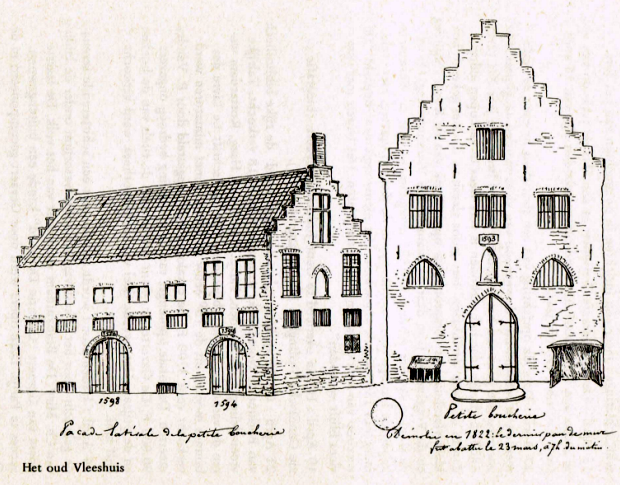 1593
1598
1594
1598
1594
Façade latérale de la petite boucherie
Petite boucherie
Démolie en 1822: le dernier pan de mur
fut abattu le 23 mars, à 7h. du matin.
Het oud Vleeshuis